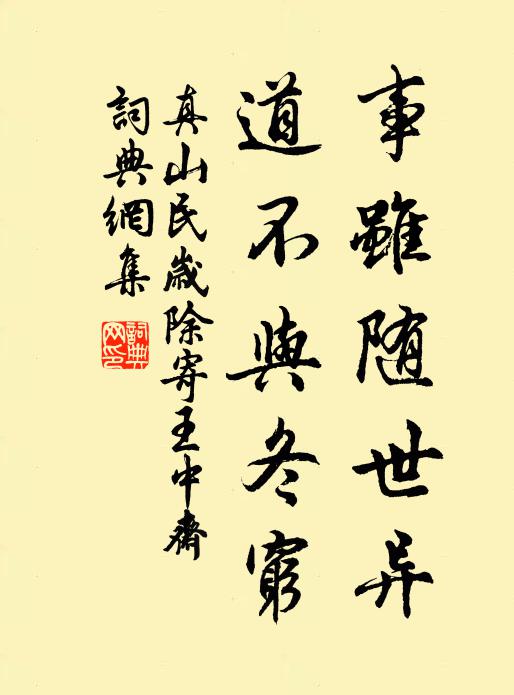 事雖随世异
道不與冬窮
真山民歲除寄王中齋
詞典網集
詞典網印